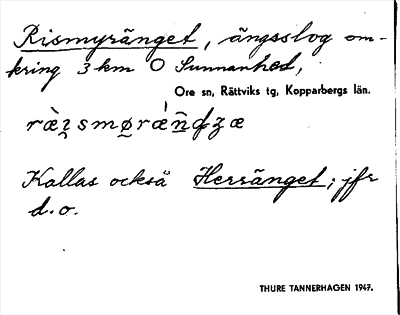 Rismyränget, ängsslog om-
kring 3 km O Sunnanhed,
Ore sn, Rättviks tg, Kopparbergs län.
Kallas också Herränget; jfr
d. o.
THURE TANNERHAGEN 1947.